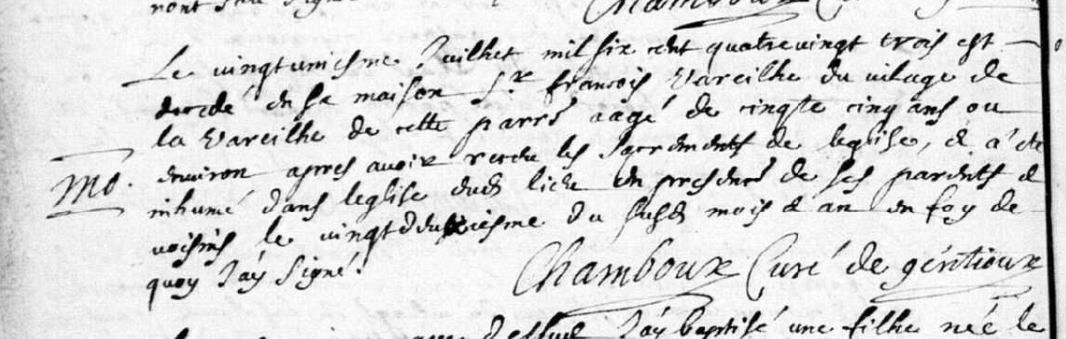 Chamboux
Le vingtuniesme Juilhet mil six cent quatrevingt trois est
decedé en sa maison Sr francois Vareilhe du vilage de
la Vareilhe de cette parrse aagé de cinqte cinq ans ou
environ apres avoir receu les Sacrements de leglise, et a ete
Mo.
inhumé dans leglise dud lieu en presence de ses parents et
voisins le vingtdeuxiesme du susd mois et an en foy de
quoy Jay Signé.
Chamboux Curé de gentioux
Jay baptisé une filhe née le